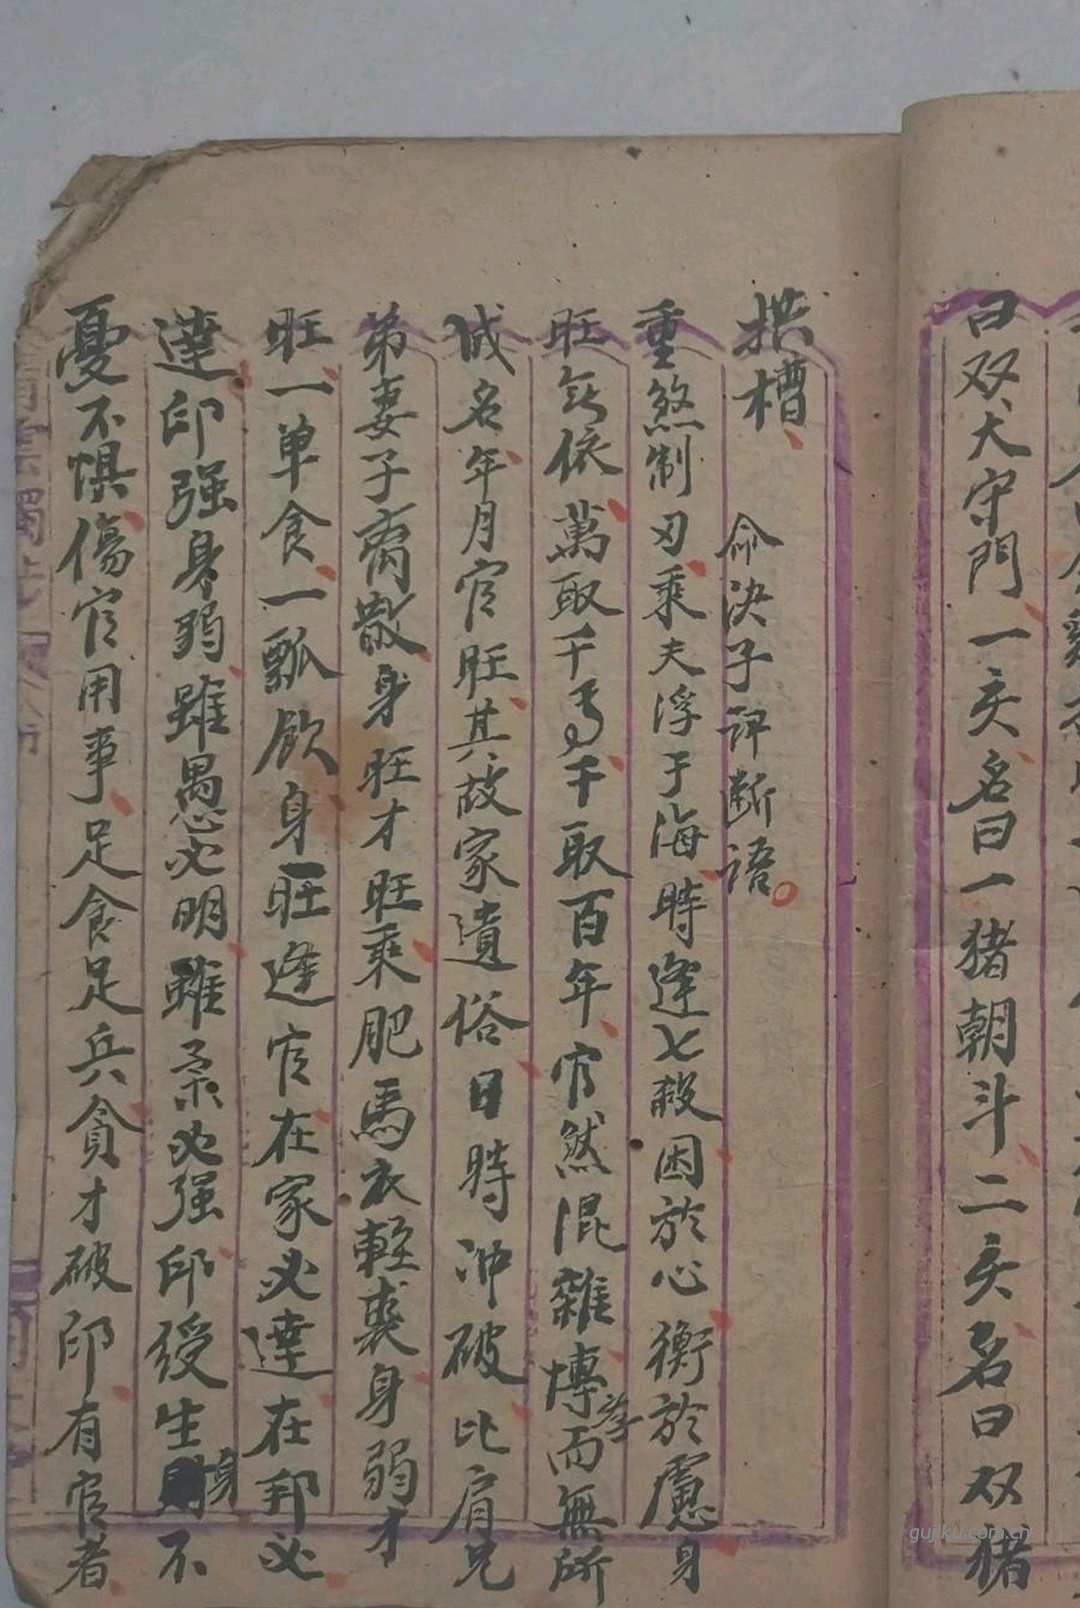 曰双犬守門一亥名曰一猪朝斗二亥名曰双猪
拱槽
命决子評断語
重煞制刃乘夫浮于海時逢七殺困於心衡於慮身
旺無依萬取千馬千取百年官然混雜博孝而無所
成名年月官旺其故家遺俗日時冲破比肩兄
弟妻子离散身旺才旺乘肥馬衣軽裘身弱才
旺一单食一瓢飲身旺逢官在家必達在邦必
達印强身弱雖愚必明雖柔必强印绶生身不
憂不惧傷官用事足食足兵貪才破印有官者
gujiku.com.cn